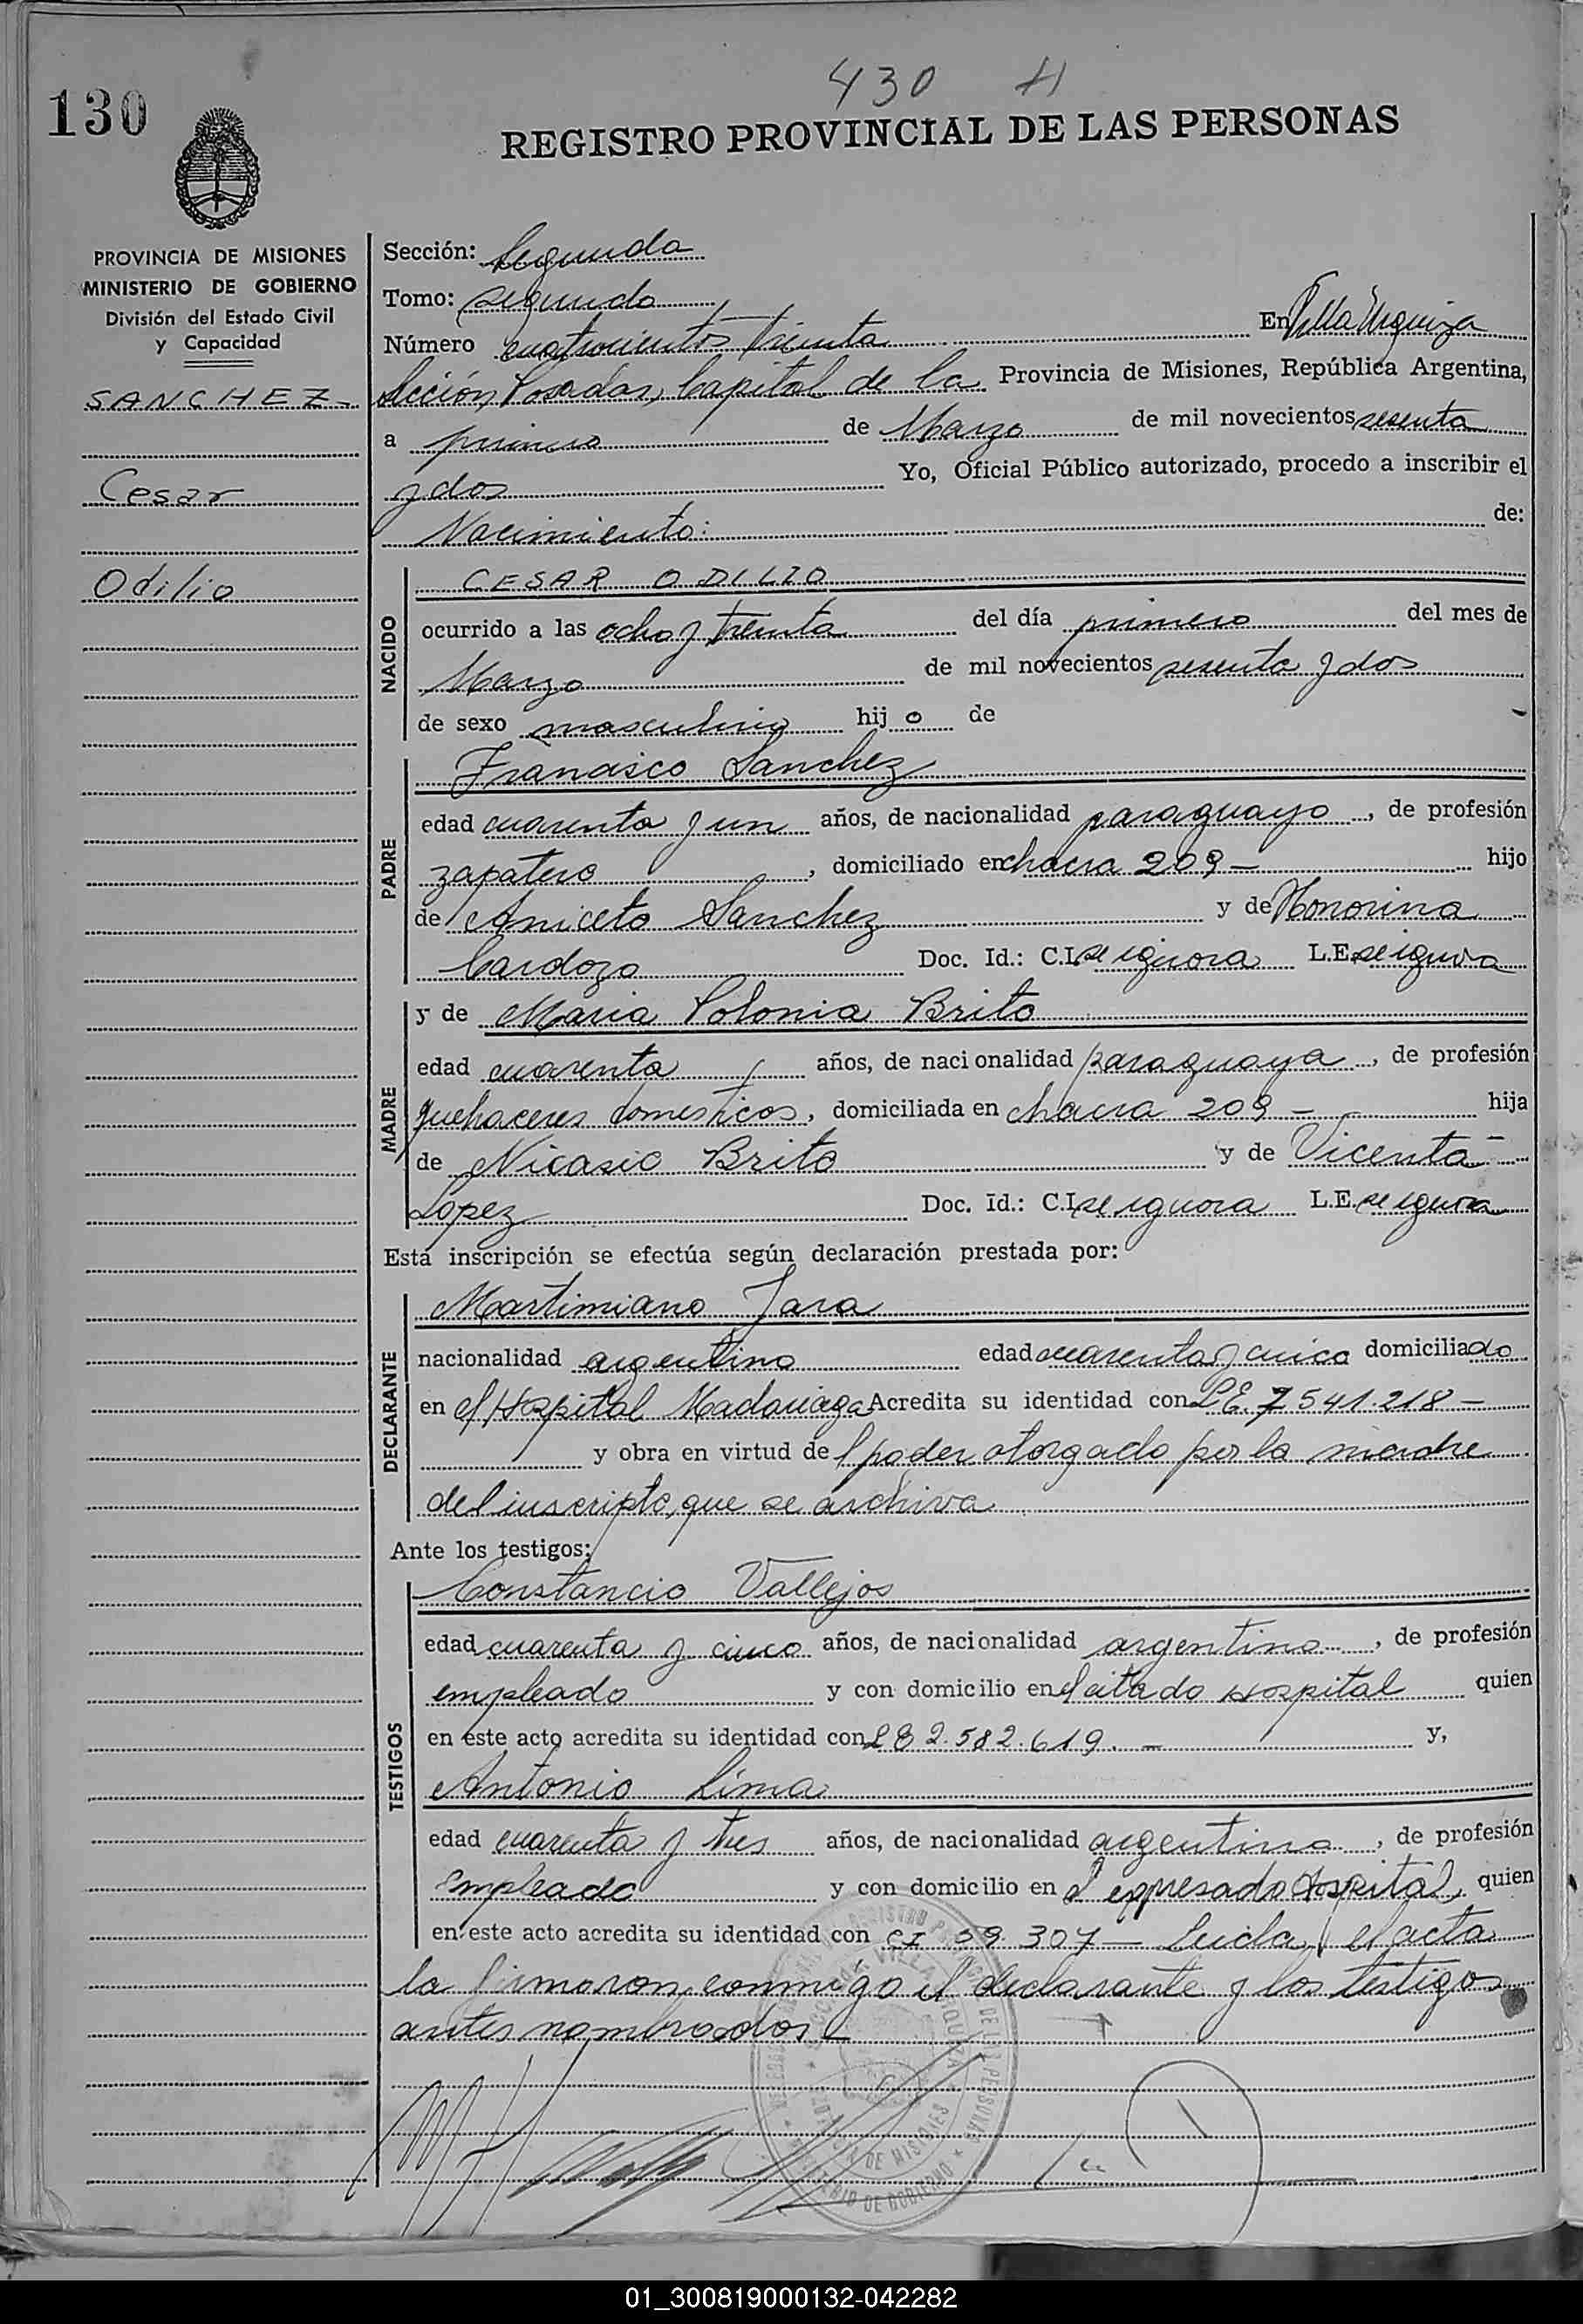 430 H
130
REGISTRO PROVINCIAL DE LAS PERSONAS
PROVINCIA DE MISIONES
MINISTERIO DE GOBIERNO
División del Estado Civil
y Capacidad
SANCHEZ-
Cesar
Odilio
Sección: Segunda
Tomo: segundo
Número cuatrocientos treinta En Villa Urquiza
Sección, Posadas, Capital de la Provincia de Misiones, República Argentina,
a primero de Marzo de mil novecientos sesenta
y dos Yo, Oficial Público autorizado, procedo a inscribir el
Nacimiento: de:
NACIDO
CESAR ODILIO
ocurrido a las ocho y treinta del día primero del mes de
Marzo de mil novecientos sesenta y dos
de sexo masculino hijo de
PADRE
Francisco Sanchez
edad cuarenta y un años, de nacionalidad paraguayo, de profesión
zapatero, domiciliado en chacra 209- hijo
de Aniceto Sanchez y de Honorina
Cardozo Doc. Id.: C.I. se ignora L.E. se ignora
MADRE
y de Maria Polonia Brito
edad cuarenta años, de nacionalidad paraguaya, de profesión
quehaceres domesticos, domiciliada en chacra 209- hija
de Nicasio Brito y de Vicenta-
Lopez Doc. Id.: C.I. se ignora L.E. se ignora
Esta inscripción se efectúa según declaración prestada por:
DECLARANTE
Martimiano Jara
nacionalidad argentino edad cuarenta y cinco domiciliado
en el Hospital Madariaga Acredita su identidad con L.E. 7541.218-
y obra en virtud del poder otorgado por la madre
del inscripto, que se archiva
Ante los testigos:
TESTIGOS
Constancio Vallejos
edad cuarenta y cinco años, de nacionalidad argentino, de profesión
empleado y con domicilio en el citado Hospital quien
en este acto acredita su identidad con LE 2.582.619.- y,
Antonio Lima
edad cuarenta y tres años, de nacionalidad argentino, de profesión
empleado y con domicilio en el expresado Hospital, quien
en este acto acredita su identidad con CI 59.307- Leida el acta
la firmaron conmigo el declarante y los testigos
antes nombrados-
01_300819000132-042282